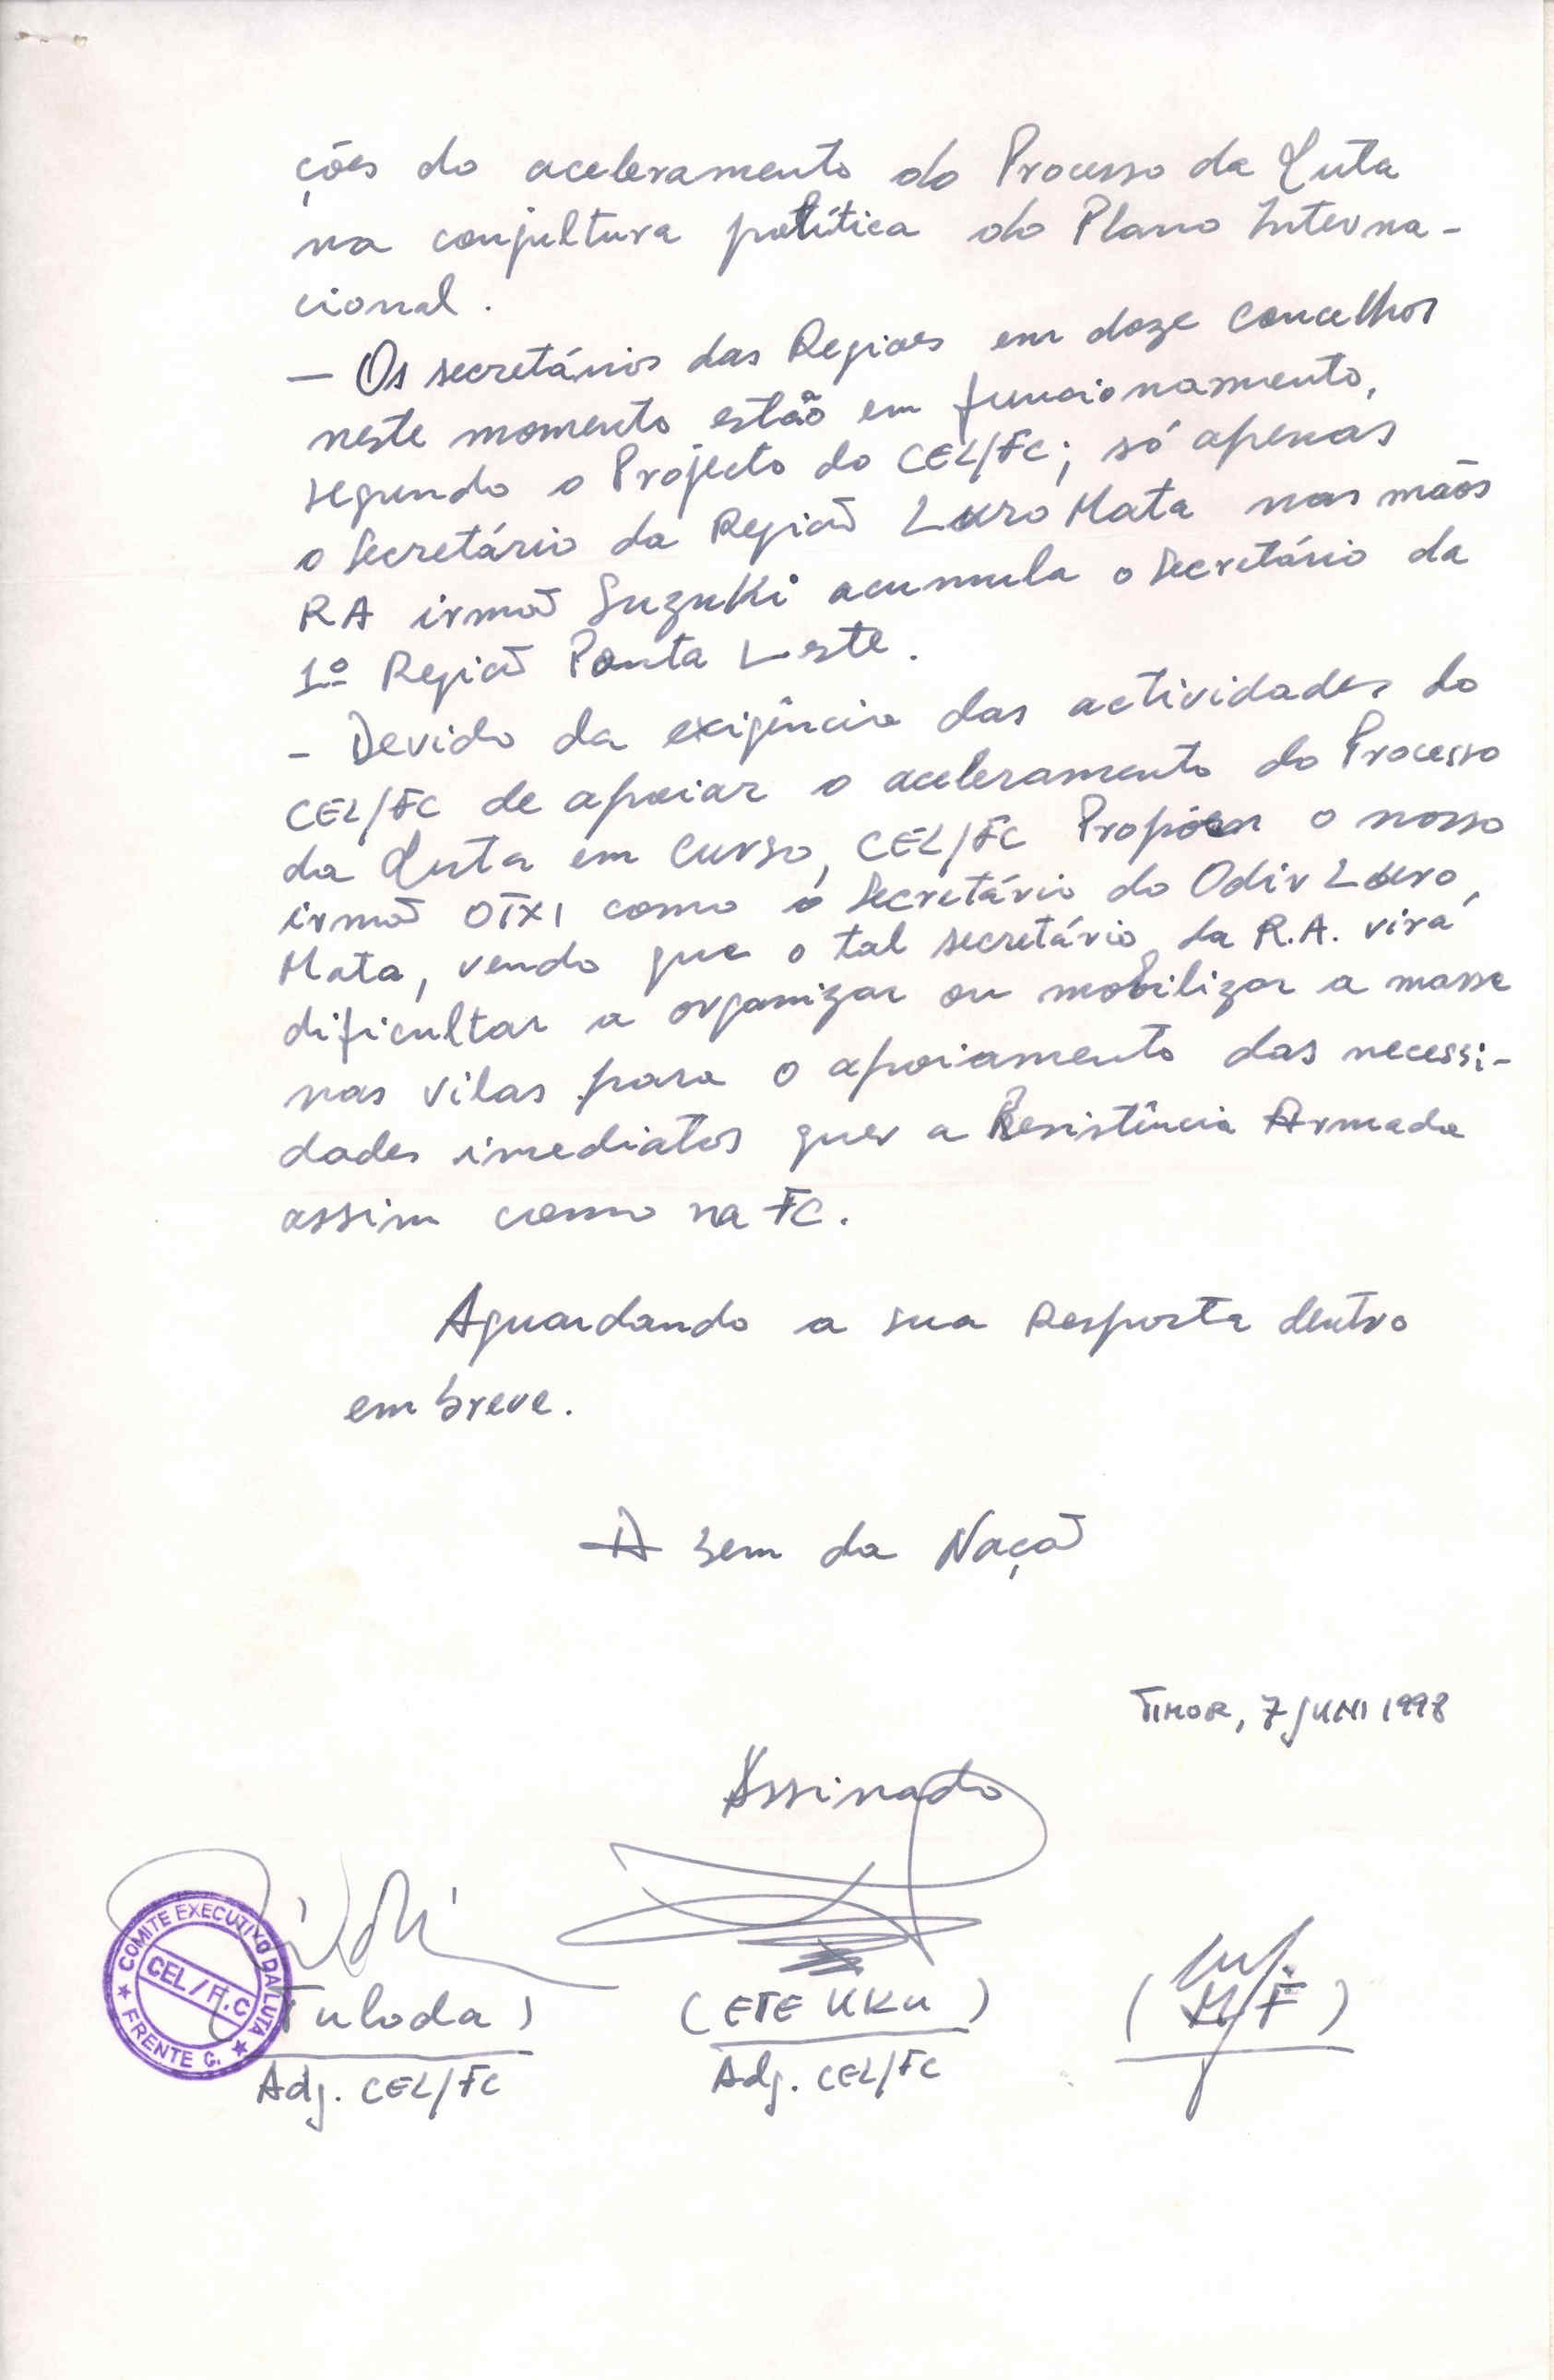 ções do aceleramento do Processo da Luta
na conjultura política do Plano Interna-
cional.
— Os secretários das Regiões em doze concelhos
neste momento estão em funcionamento,
segundo o Projecto do CEL/FC; só apenas
o Secretário da Região Luro Mata nas mãos
RA irmão Suzuki acumula o Secretário da
1º Região Ponta Leste.
- Devido da exigência das actividades do
CEL/FC de apoiar o aceleramento do Processo
da Luta em curso, CEL/FC Propõem o nosso
irmão OTXI como o Secretário do Odir Luro
Mata, vendo que o tal secretário da R.A. virá
dificultar a organizar ou mobilizar a massa
nas vilas para o apoiamento das necessi-
dades imediatos quer a Resistência Armada
assim como na FC.
Aguardando a sua Resposta dentro
em breve.
A bem da Nação
TIMOR, 7 JUNI 1998
Assinado
COMITE EXECUTIVO DA LUTA
CEL/F.C
FRENTE C.
(Tuloda) (ETE UKU) (M/F)
Adj. CEL/FC Adj. CEL/FC